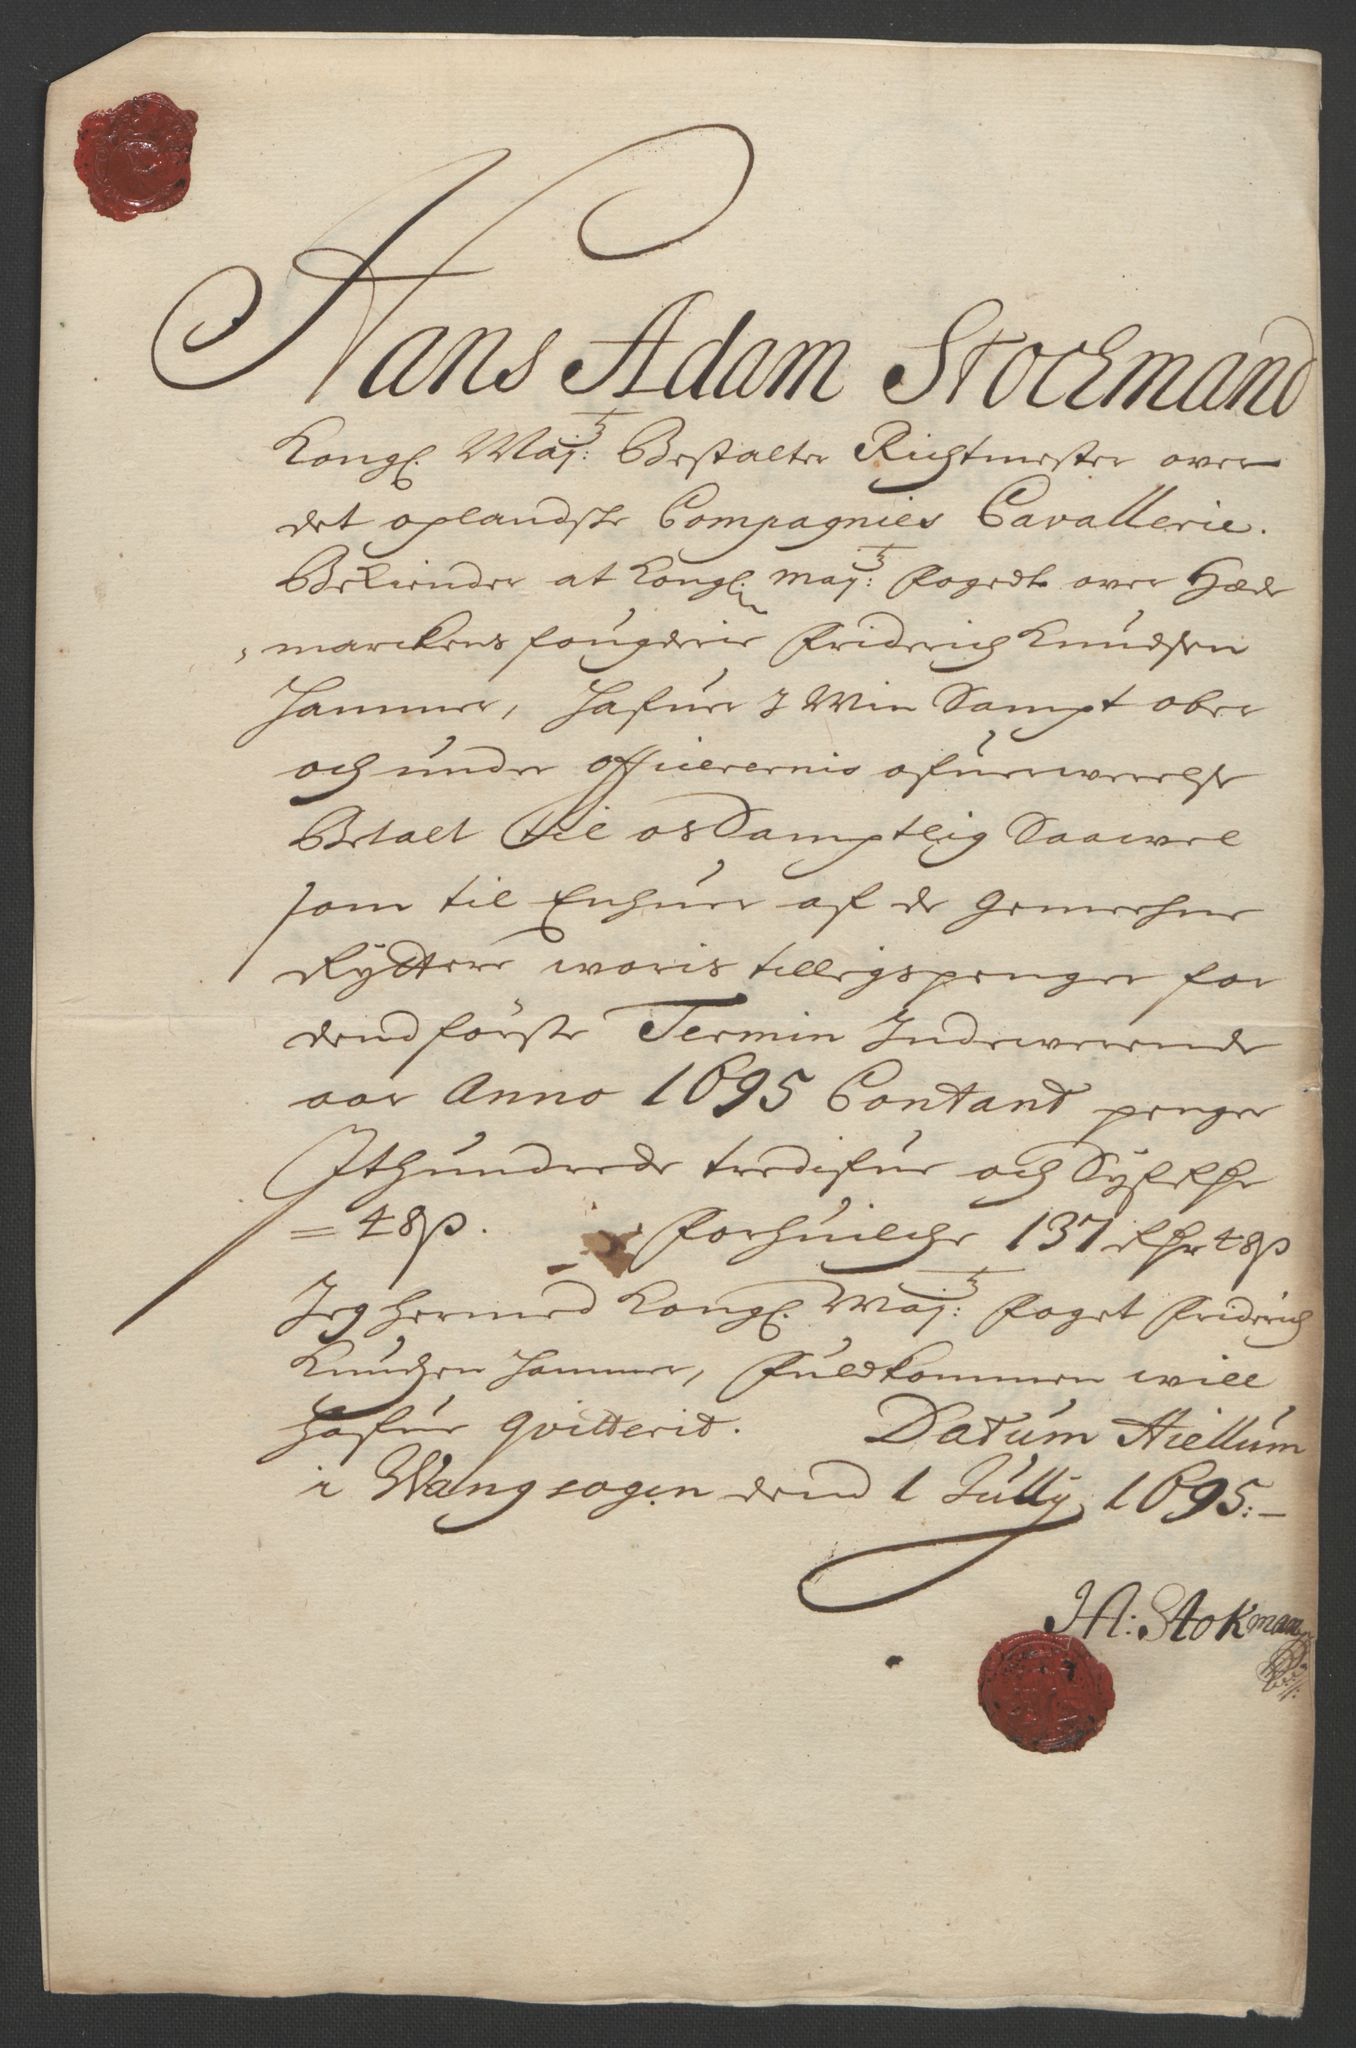 Hans Adam Stockmand
Kongl. Maj:tz Bestalter Richtmester over
det oplandske Compagnies Cavallerie.
Bekiender at Kongl: Maj:tz fogedt over Hæde
marckens fougderie Friderich Knudsen
Hammer, hafuer I Min Sampt ober
och under officierernis ofuerwerelse
Betalt til os Samptlig Saawel
som til Enhuer af de gemeehne
Rÿttere woris tillegspenger for
dend förste Termin Indewerende
aar Anno 1695 Contant penger
Ithundrede tredisfue och Syf Rdr
= 48 s. forhuilche 137 Rdr 48 s
Jeg hermed Kongl. Maj:tz foget Friderich
Knudsen Hammer, fuldkommen will
hafue qvitterit. Datum Aiellum
i Wangsogen dend 1 Jullÿ 1695:-
HA: Stokman